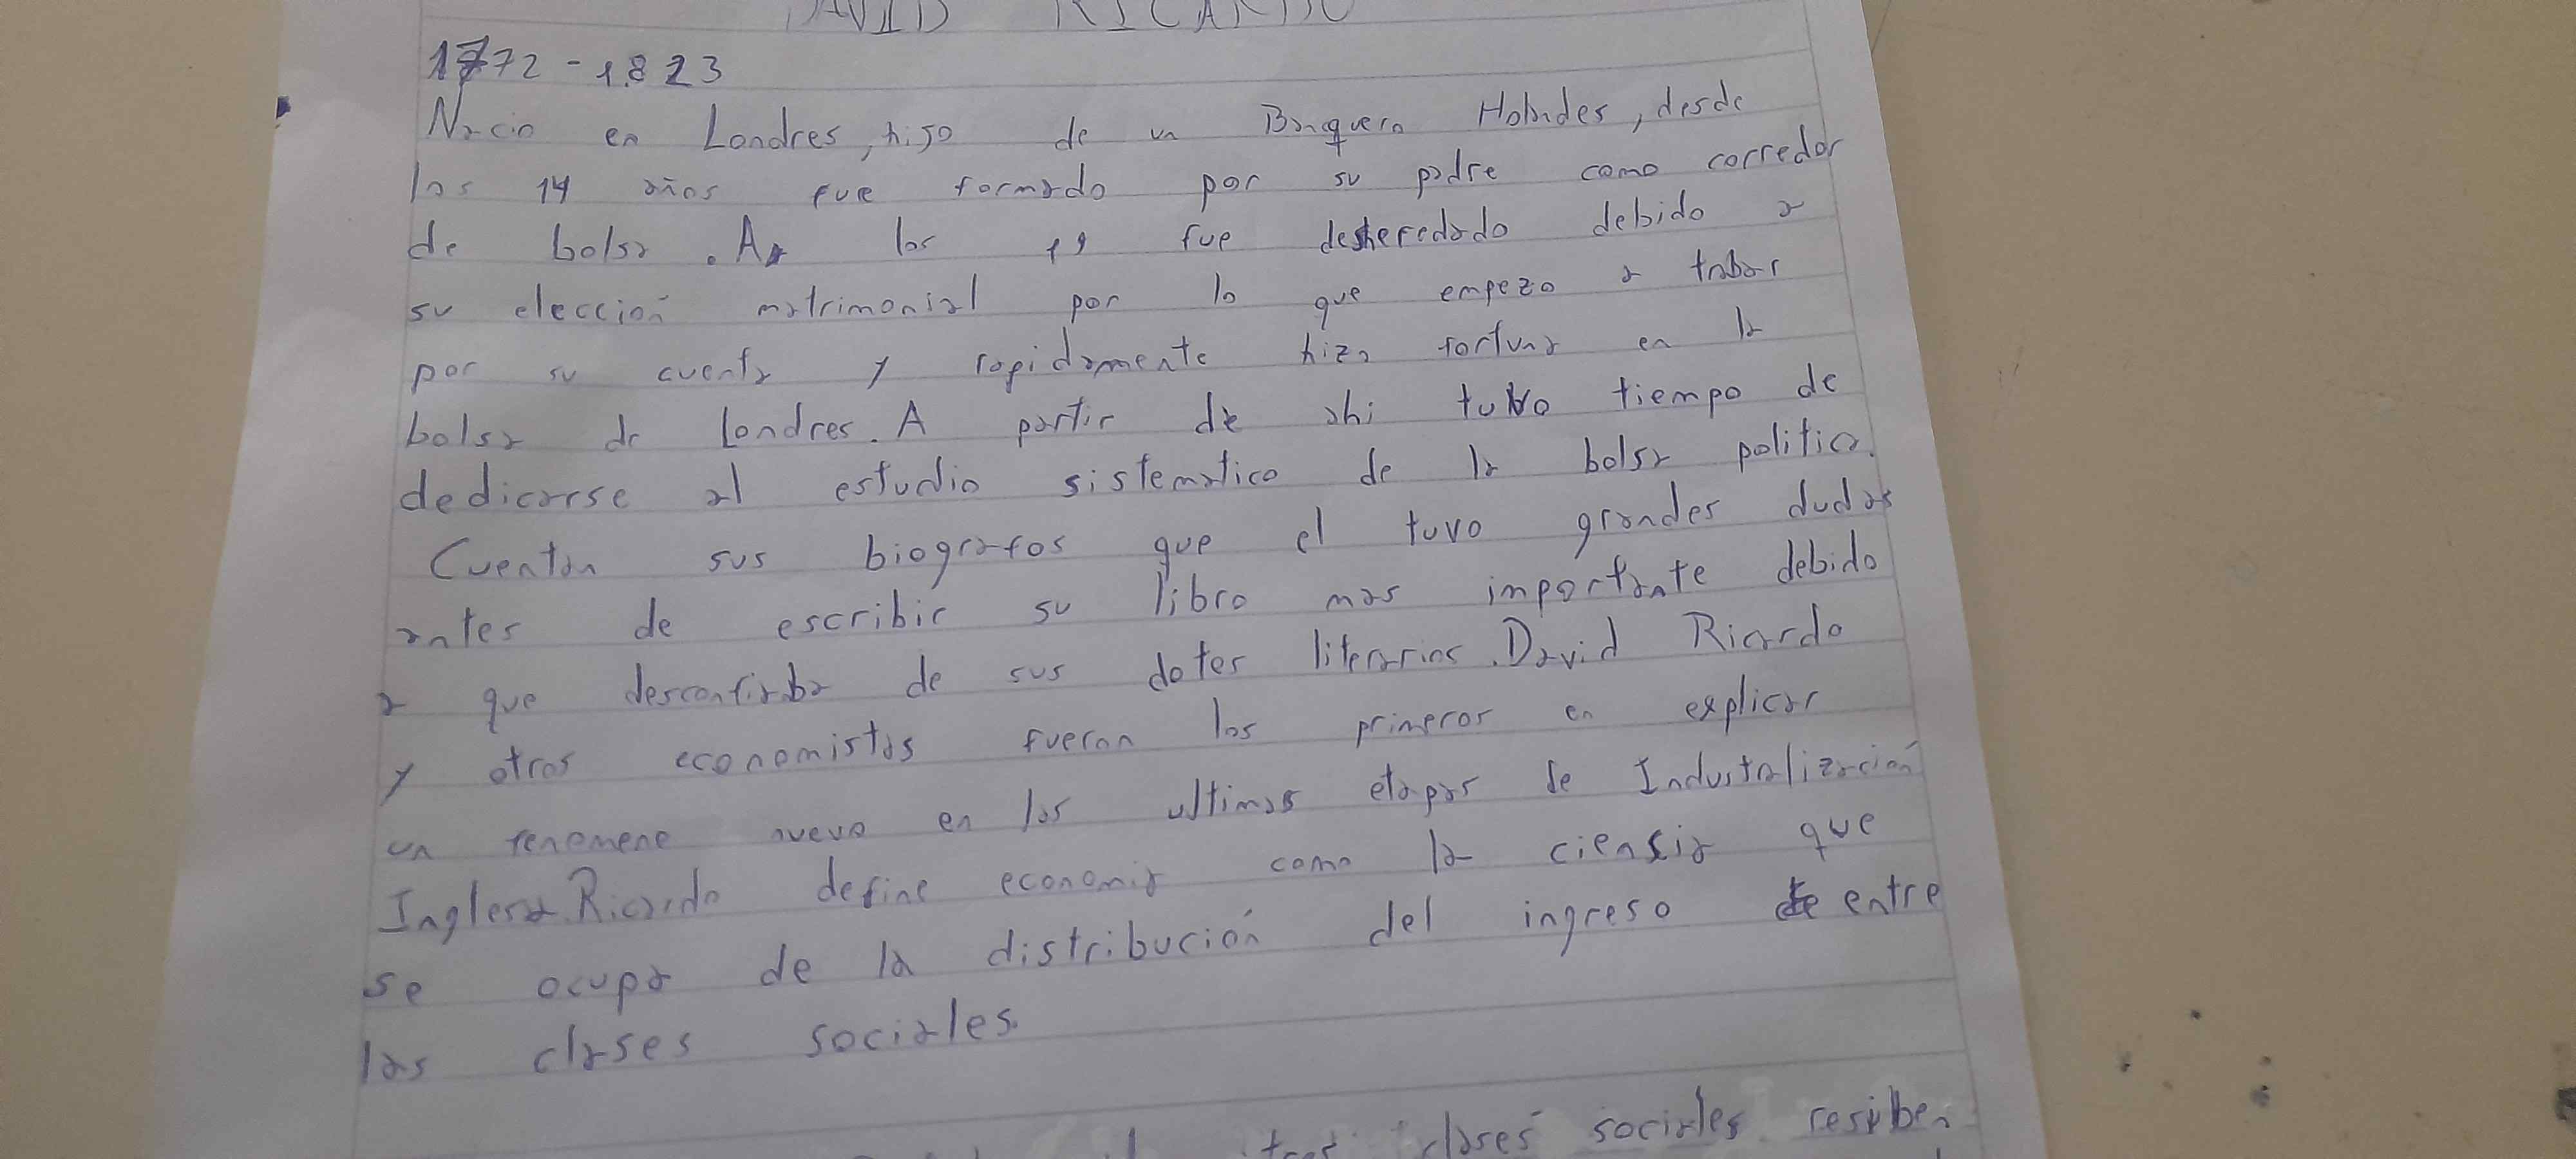 DAVID RICARDO
1772 - 1823
Nacio en Londres, hijo de un Banquero Holandes, desde
los 14 años fue formado por su padre como corredor
de bolsa. A los 19 fue desheredado debido a
su elección matrimonial por lo que empezo a trabar
por su cuenta y rapidamente hizo fortuna en la
bolsa de Londres. A partir de ahi tuvo tiempo de
dedicarse al estudio sistematico de la bolsa politica.
Cuentan sus biografos que el tuvo grandes dudas
antes de escribir su libro mas importante debido
a que desconfiaba de sus dotes literarios. David Ricardo
y otros economistas fueron los primeros en explicar
un fenomene nuevo en las ultimas etapas de Industalización
Inglesa. Ricardo define economia como la ciensia que
se ocupa de la distribución del ingreso entre
las clases sociales.
tres clases sociales resiben